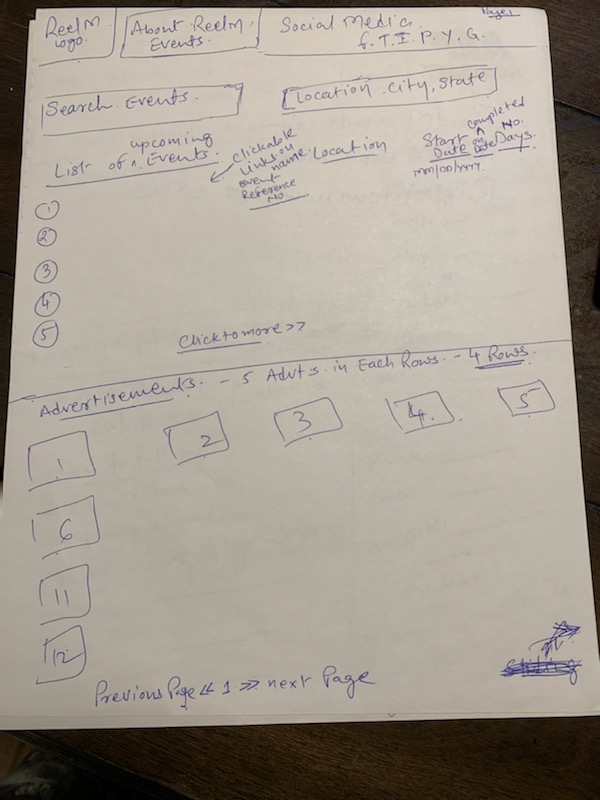 Page 1
ReelM logo.
About ReelM. Events.
Social Media
f. T. I. P. Y. G.
Search Events.
Location. City, State
List of ^ Events.
upcoming
Clickable
Links on
event name.
Reference
No.
Location
Start Date
^ completed on Date
No. Days.
mm/DD/YYYY.
1
2
3
4
5
Click to more >>
Advertisements. - 5 Advts. in Each Rows. - 4 Rows.
1 2 3 4. 5
6
11
12
Previous Page << 1 >> next Page